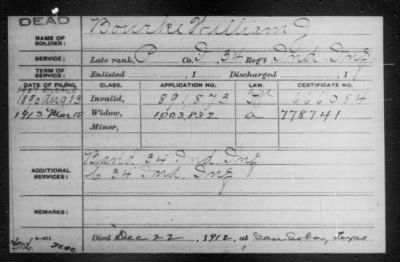 DEAD
NAME OF SOLDIER: Bourke William J
SERVICE: Late rank, C Co. D, 34 Reg't Ind Inf
TERM OF SERVICE: Enlisted , 1 Discharged , 1
DATE OF FILING. CLASS. APPLICATION NO. LAW. CERTIFICATE NO.
1890 Aug 13 Invalid, 891,873 666084
1913 Mar 10 Widow, 1003,832 a 778741
Minor,
ADDITIONAL SERVICES: Band 34 Ind Inf
C 34 Ind. Inf
REMARKS:
Died Dec 22, 1912, at San Saba, Texas